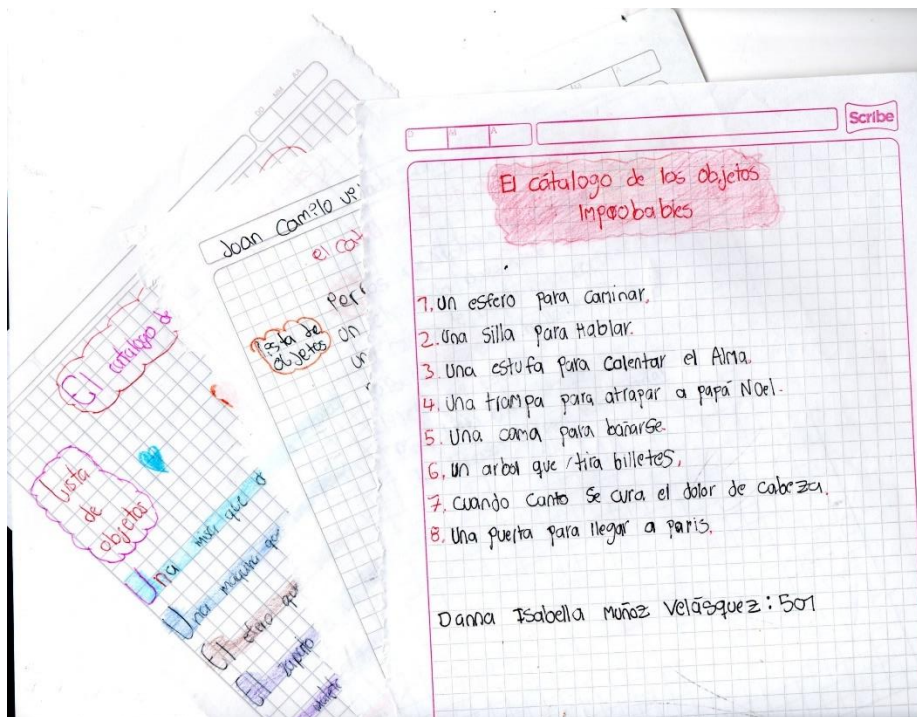 Scribe
D M A
El cátalogo de los objetos
Improbables
1. Un esfero para caminar.
2. Una silla para Hablar.
3. Una estufa para calentar el Alma.
4. Una trampa para atrapar a papá Noel.
5. Una cama para bañarse.
6. Un arbol que tira billetes.
7. Cuando canto se cura el dolor de cabeza.
8. Una puerta para llegar a paris.
Danna Isabella Muñoz Velásquez: 501
Joan Camilo
el
lista de
objetos
un
El catalogo
Lista
de
objetos
Una
Una
El esfero
El zapato